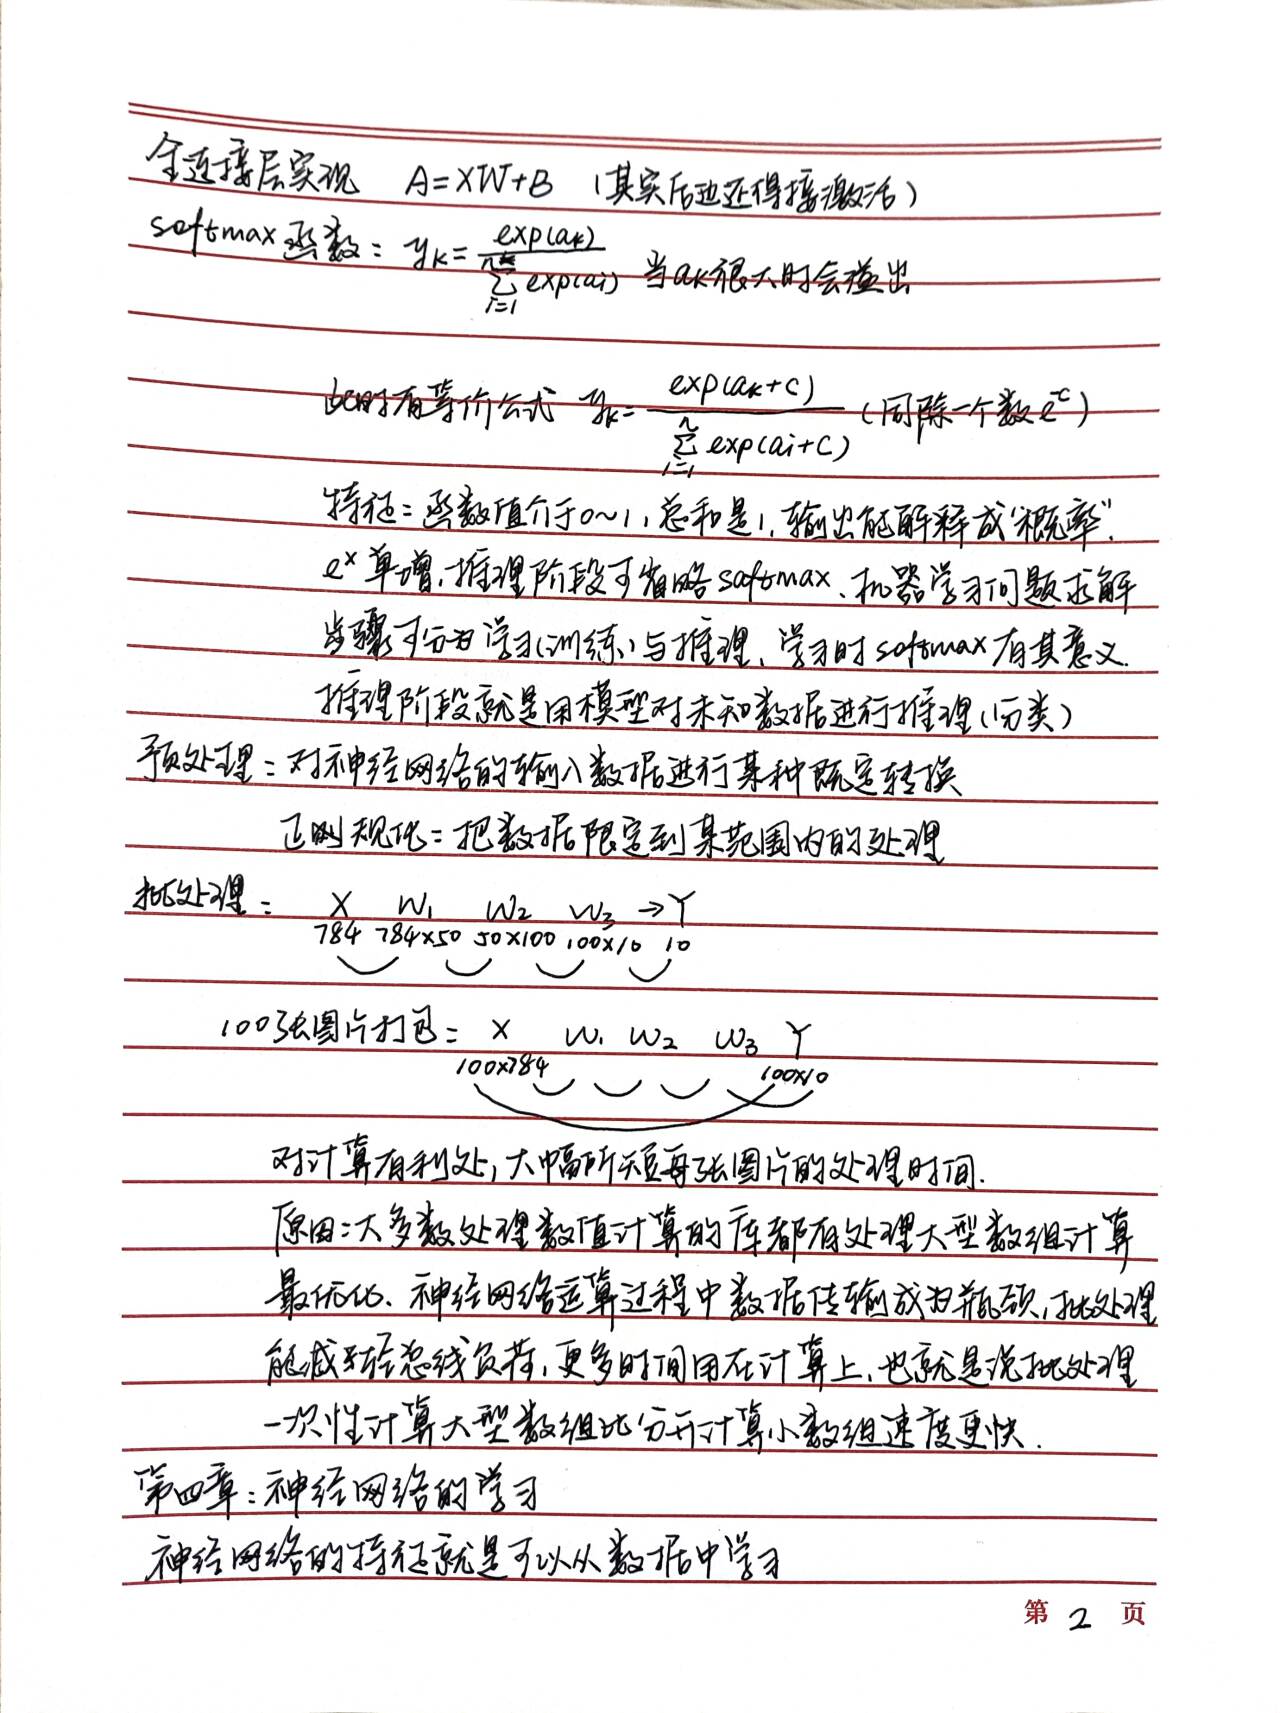 全连接层实现 A=XW+B (其实后边还得接激活)
softmax函数: yk= exp(ak) / Σ(i=1→n) exp(ai) 当ak很大时会溢出
此时有等价公式 yk= exp(ak+C) / Σ(i=1→n) exp(ai+C) (同除一个数e^-C)
特征:函数值介于0~1,总和是1,输出能解释成"概率".
e^x单增,推理阶段可省略softmax、机器学习问题求解
步骤可分为学习(训练)与推理,学习时softmax有其意义.
推理阶段就是用模型对未知数据进行推理(分类)
预处理:对神经网络的输入数据进行某种既定转换
正则规化:把数据限定到某范围内的处理
批处理: X W1 W2 W3 →Y
784 784×50 50×100 100×10 10
100张图片打包: X W1 W2 W3 Y
100×784 100×10
对计算有利处,大幅所短每张图片的处理时间.
原因:大多数处理数值计算的库都有处理大型数组计算
最优化、神经网络运算过程中数据传输成为瓶颈,批处理
能减轻总线负荷,更多时间用在计算上,也就是说批处理
一次性计算大型数组比分开计算小数组速度更快.
第四章:神经网络的学习
神经网络的特征就是可以从数据中学习
第 2 页